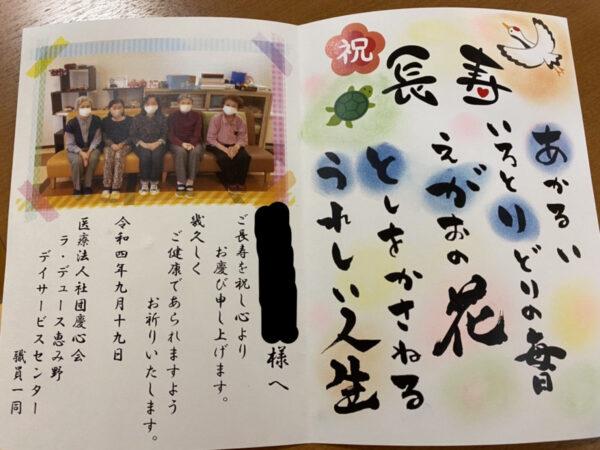 祝
長寿
あかるい
いろとりどりの毎日
えがおの花
としをかさねる
うれしい人生
様へ
ご長寿を祝し心より
お慶び申し上げます。
幾久しく
ご健康であられますよう
お祈りいたします。
令和四年九月十九日
医療法人社団慶心会
ラ・デュース恵み野
デイサービスセンター
職員一同